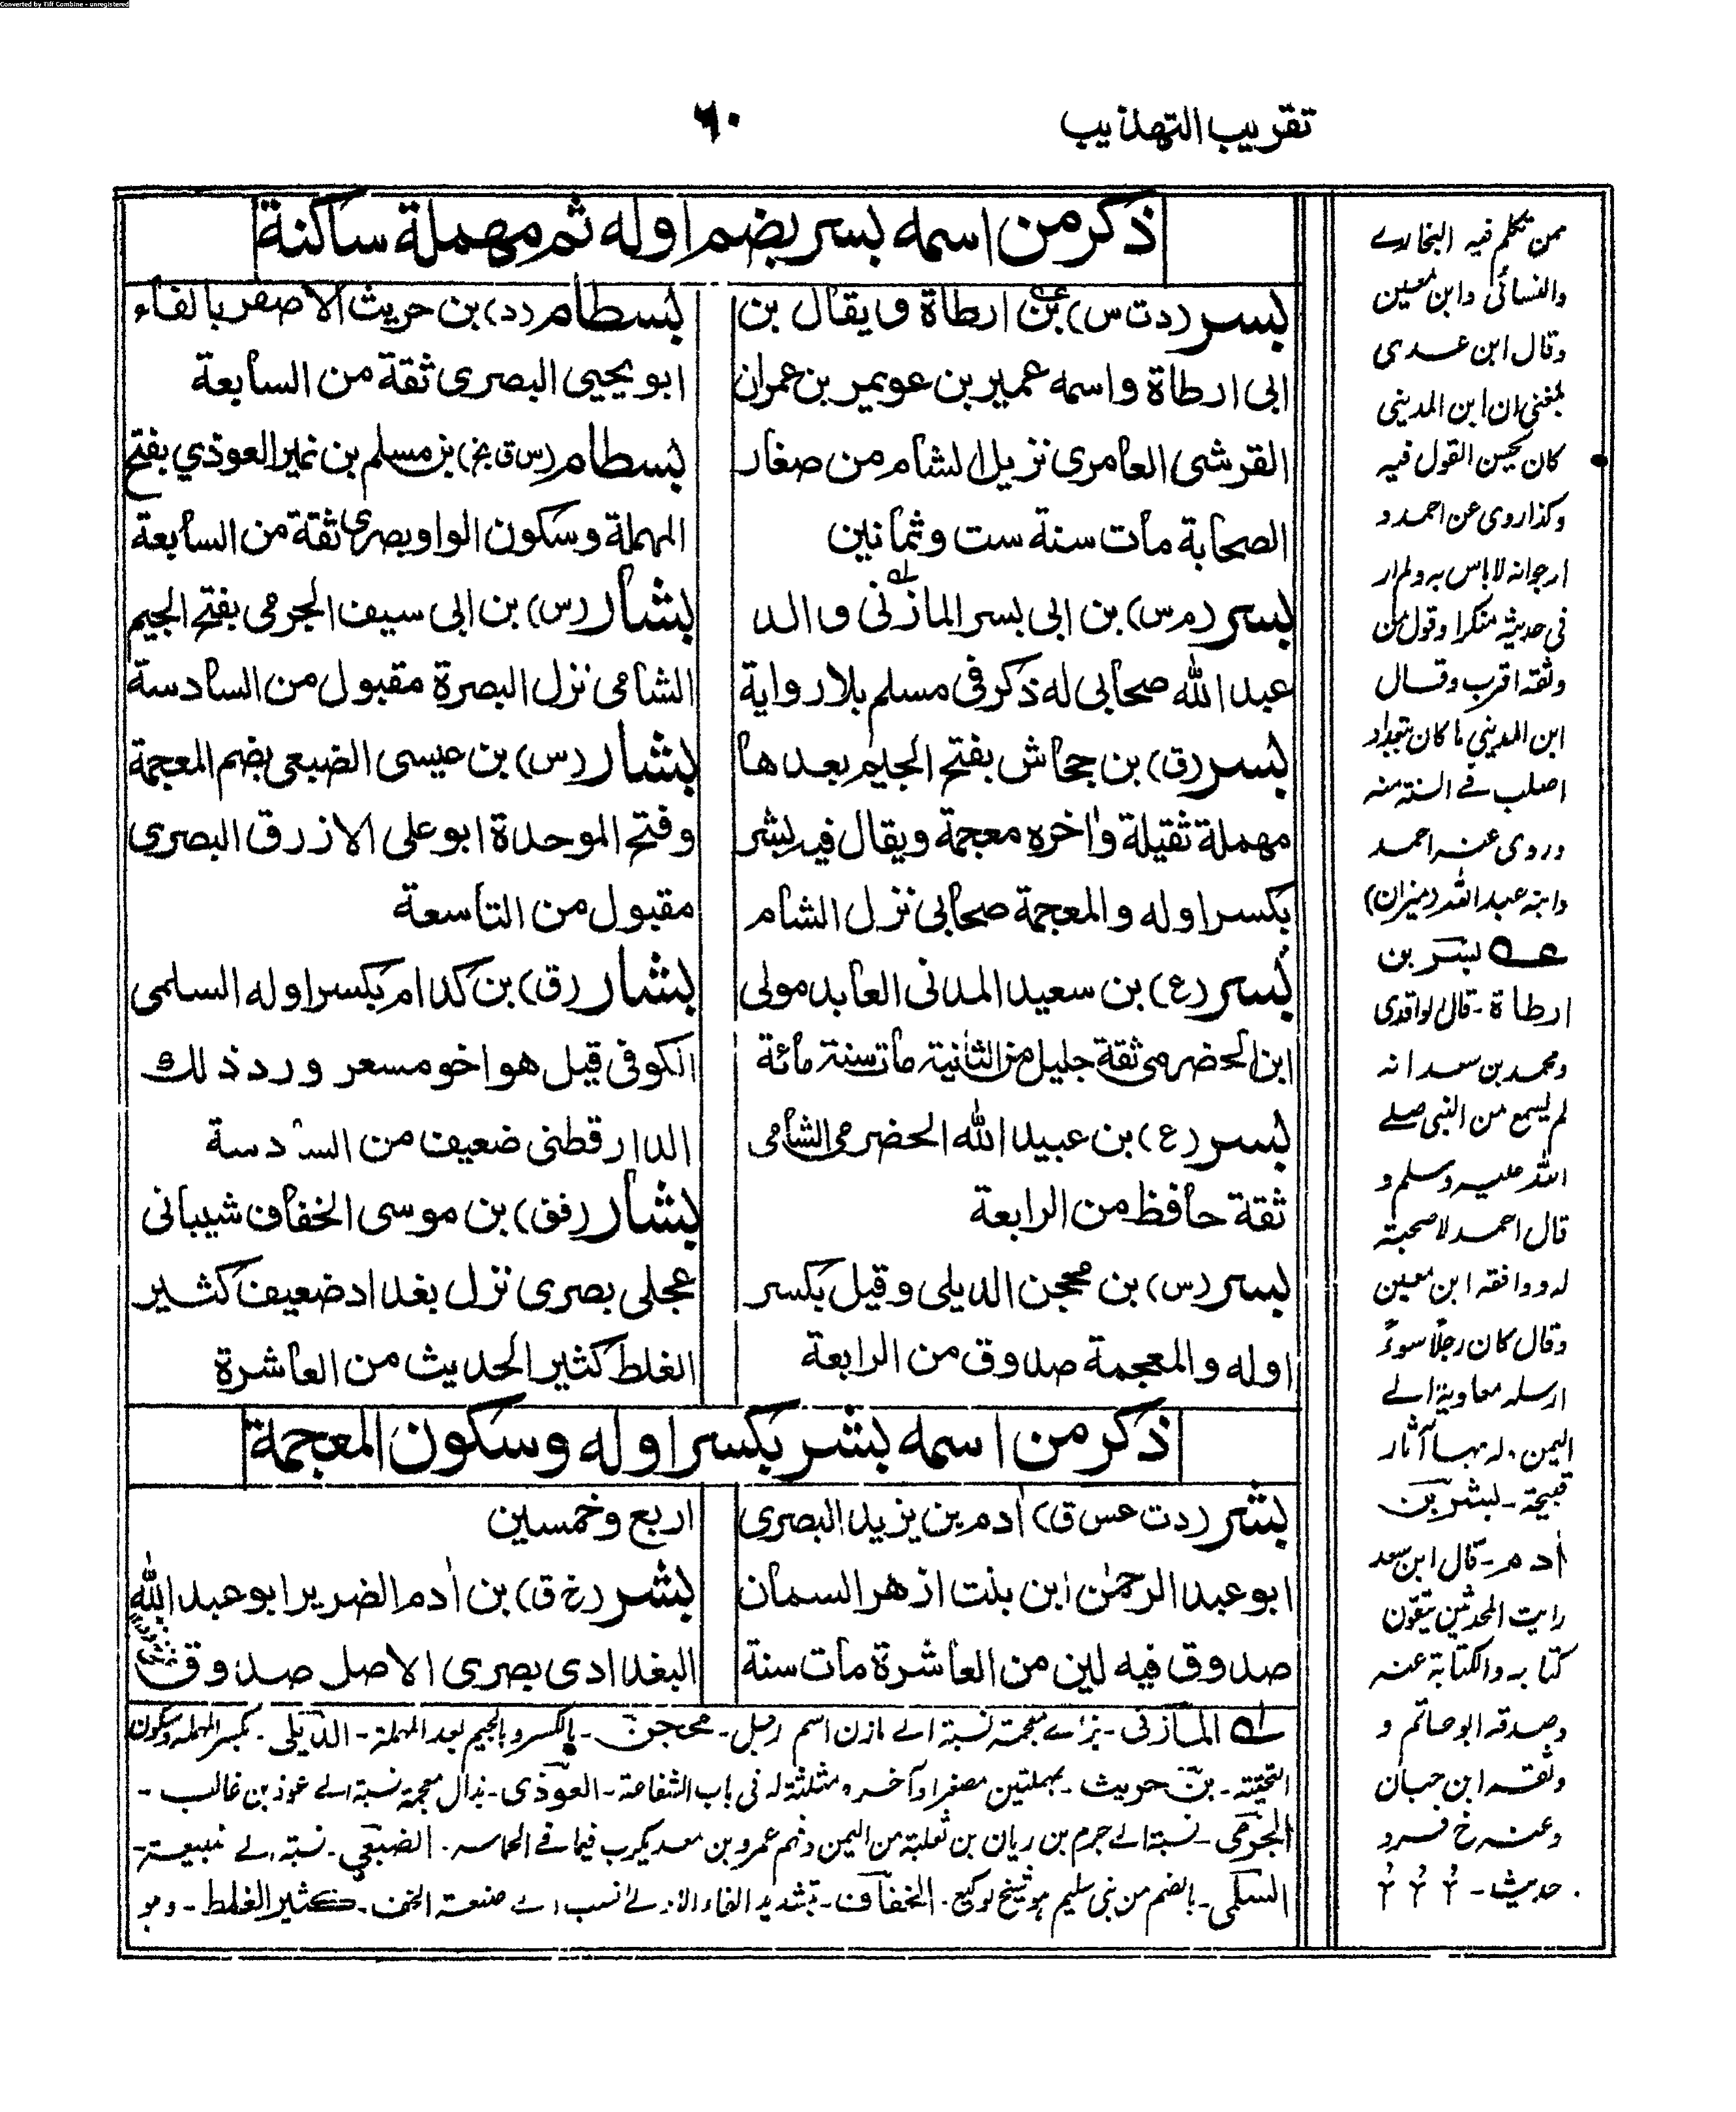 Converted by Tiff Combine - unregistered
تقريب التهذيب
٦٠
ذكر من اسمه بسر بضم اوله ثم مهملة ساكنة
بسر (دت س) بن ارطاة ويقال بن
ابى ارطاة واسمه عمير بن عويمر بن عمران
القرشى العامرى نزيل الشام من صغار
الصحابة مات سنة ست وثمانين
بسر (م س) بن ابى بسر المازنى والد
عبد الله صحابى له ذكر فى مسلم بلا رواية
بسر (ق) بن جحاش بفتح الجيم بعدها
مهملة ثقيلة واخره معجمة ويقال فيه بشر
بكسر اوله والمعجمة صحابى نزل الشام
بسر (ع) بن سعيد المدنى العابد مولى
ابن الحضرمى ثقة جليل من الثانية مات سنة مائة
بسر (ع) بن عبيد الله الحضرمى الشامى
ثقة حافظ من الرابعة
بسر (س) بن محجن الديلى وقيل بكسر
اوله والمعجمة صدوق من الرابعة
بسطام (د) بن حريث الاصفر بالفاء
ابو يحيى البصرى ثقة من السابعة
بسطام (س ق بخ) بن مسلم بن نمير العوذي بفتح
المهملة وسكون الواو بصرى ثقة من السابعة
بشار (س) بن ابى سيف الجرمى بفتح الجيم
الشامى نزل البصرة مقبول من السادسة
بشار (س) بن عيسى الضبعى بضم المعجمة
وفتح الموحدة ابو على الازرق البصرى
مقبول من التاسعة
بشار (ق) بن كدام بكسر اوله السلمى
الكوفى قيل هو اخو مسعر ورد ذلك
الدارقطنى ضعيف من السادسة
بشار (فق) بن موسى الخفاف شيبانى
عجلى بصرى نزل بغداد ضعيف كثير
الغلط كثير الحديث من العاشرة
ذكر من اسمه بشر بكسر اوله وسكون المعجمة
بشر (دت عس ق) ادم بن يزيد البصرى
ابو عبد الرحمن ابن بنت ازهر السمان
صدوق فيه لين من العاشرة مات سنة
اربع وخمسين
بشر (خ ق) بن ادم الضرير ابو عبد الله
البغدادى بصرى الاصل صدوق
له المازنى - بزاے معجمة نسبة الے مازن اسم رجل - محجن - بالكسر و بالجيم بعد المهملة - الديلى - بكسر المهملة وسكون
التحتية - بن حريث - بمهملتين مصغرا وآخره مثلثة له فى باب الشفاعة - العوذى - بذال معجمة نسبة الے عوذ بن غالب -
الجرمى - نسبة الے جرم بن ريان بن ثعلبة من اليمن ومنهم عمرو بن معد يكرب فيما فے الحماسه - الضبعى - نسبة الے ضبيعة -
السلمى - بالضم من بنى سليم هو شيخ لوكيع - الخفاف - بتشديد الفاء الاولے نسب الے صنعة الخف - كثير الغلط - وهو
ممن تكلم فيه البخارے
والنسائى وابن معين
وقال ابن عدى
بلغنى ان ابن المدينى
كان يحسن القول فيه
وكذا روى عن احمد و
ارجو انه لا باس به ولم ار
فى حديثه منكرا وقول من
وثقه اقرب وقال
ابن المدينى ما كان ببغداد
اصلب فے السنة منه
وروى عنه احمد
وابنه عبد الله (ميزان)
عه بسر بن
ارطاة - قال الواقدى
ومحمد بن سعد انه
لم يسمع من النبى صلے
الله عليه وسلم و
قال احمد لا صحبة
له ووافقه ابن معين
وقال كان رجلا سوءً
ارسله معاوية الے
اليمن وله بها آثار
قبيحة - بشر بن
ادم - قال ابن سعد
رايت المحدثين يتقون
كتابه والكتابة عنه
وصدقه ابو حاتم و
وثقه ابن حبان
وعنه خ فرد
حديث -